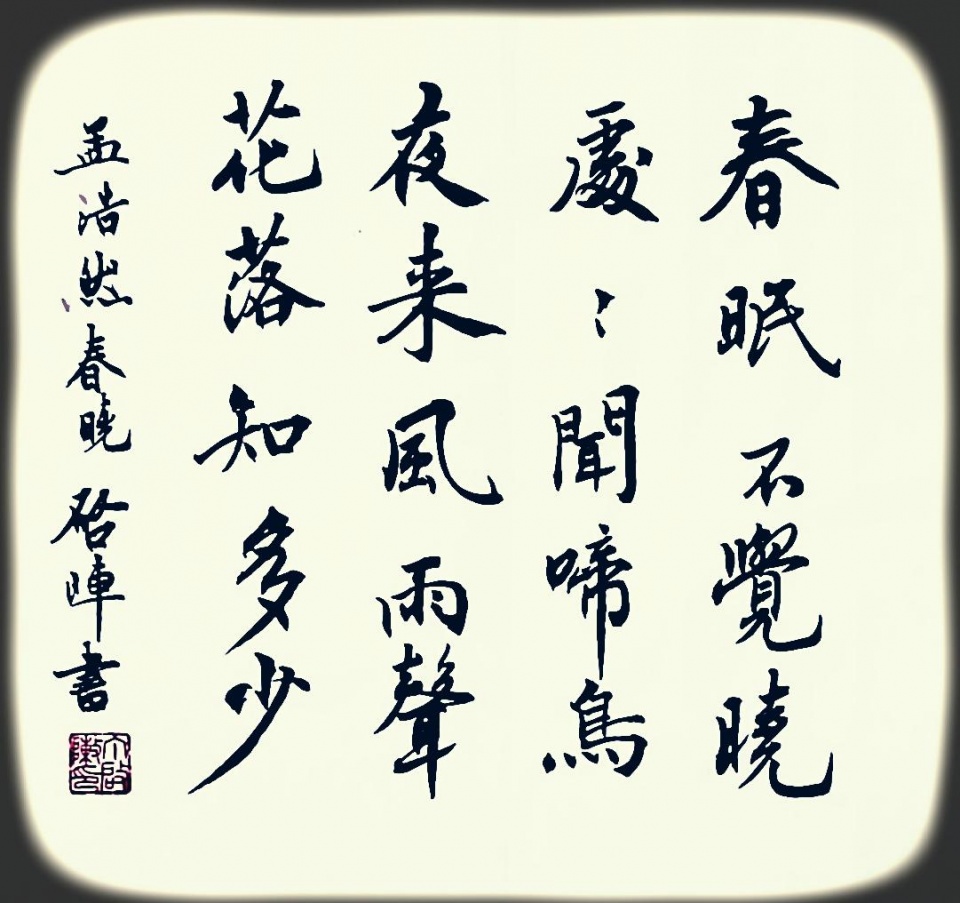 春眠不覺曉
處〻聞啼鳥
夜来風雨聲
花落知多少
孟浩然春曉 啓陣書